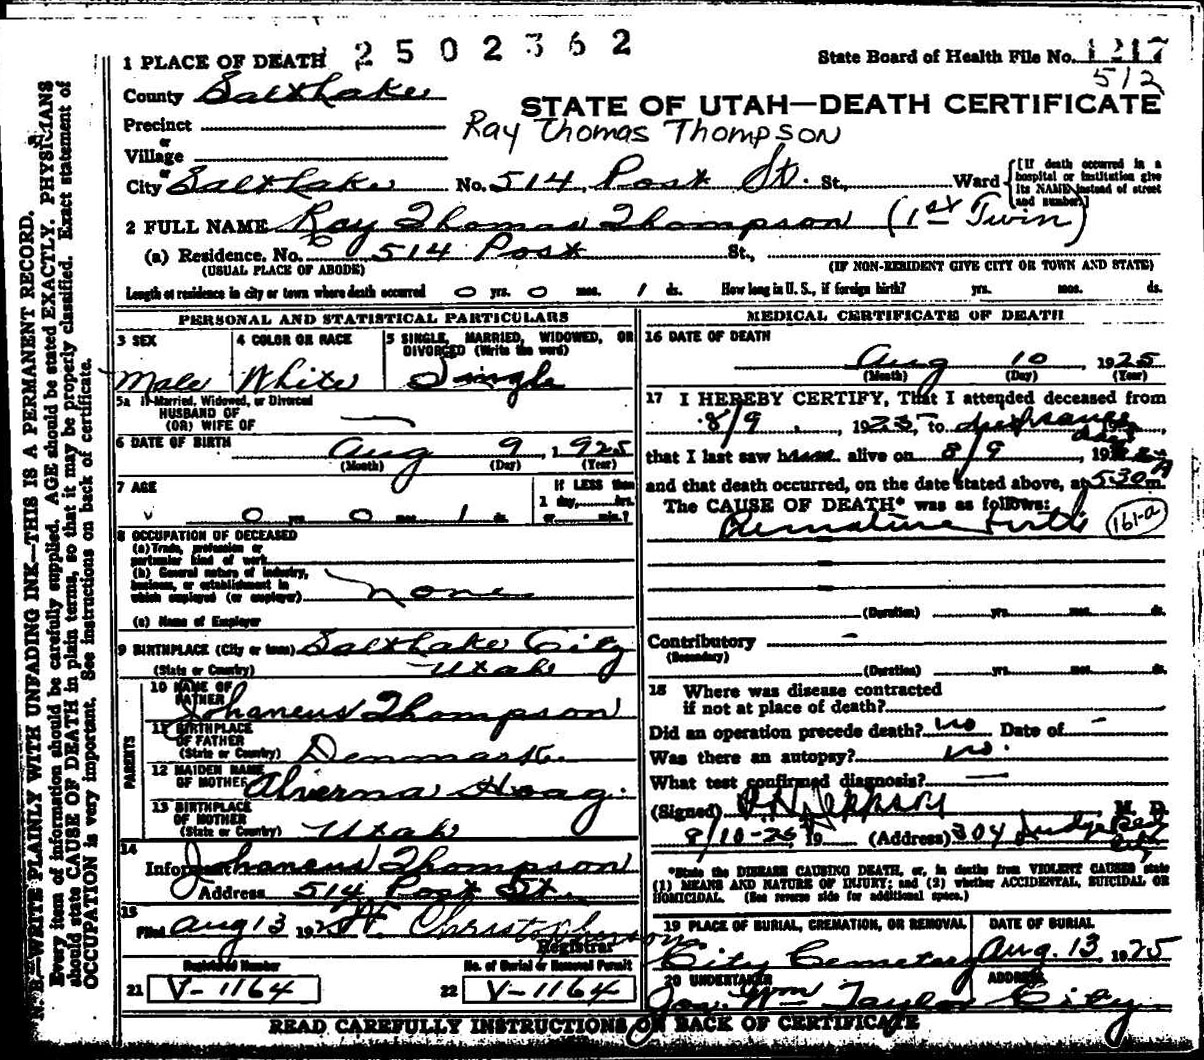 1 PLACE OF DEATH 2502362
State Board of Health File No. 1217
512
County Salt Lake
STATE OF UTAH—DEATH CERTIFICATE
Precinct
Ray Thomas Thompson
or
Village
or
City Salt Lake No. 514 Post St. St., Ward
[If death occurred in a hospital or institution give its NAME instead of street and number.]
2 FULL NAME Ray Thomas Thompson (1st Twin)
(a) Residence. No. 514 Post St.,
(USUAL PLACE OF ABODE) (IF NON-RESIDENT GIVE CITY OR TOWN AND STATE)
Length of residence in city or town where death occurred 0 yrs. 0 mos. 1 ds. How long in U. S., if foreign birth? yrs. mos. ds.
PERSONAL AND STATISTICAL PARTICULARS
3 SEX 4 COLOR OR RACE 5 SINGLE, MARRIED, WIDOWED, OR
DIVORCED (Write the word)
Male White Single
5a If Married, Widowed, or Divorced
HUSBAND OF
(OR) WIFE OF —
6 DATE OF BIRTH Aug 9, 1925
(Month) (Day) (Year)
7 AGE IF LESS than
1 day, hrs.
0 yrs. 0 mos. 1 ds. or min.?
8 OCCUPATION OF DECEASED
(a) Trade, profession or
particular kind of work
(b) General nature of industry,
business, or establishment in
which employed (or employer) none
(c) Name of Employer
9 BIRTHPLACE (City or town) Salt Lake City
(State or Country) Utah
PARENTS
10 NAME OF
FATHER Johaneus Thompson
11 BIRTHPLACE
OF FATHER
(State or Country) Denmark
12 MAIDEN NAME
OF MOTHER Alverna Hoag.
13 BIRTHPLACE
OF MOTHER
(State or Country) Utah
14
Informant Johaneus Thompson
Address 514 Post St.
15
Filed Aug 13 1925 Christopherson
Registrar
Registered Number No. of Burial or Removal Permit
21 V-1164 22 V-1164
MEDICAL CERTIFICATE OF DEATH
16 DATE OF DEATH
Aug 10 1925
(Month) (Day) (Year)
17 I HEREBY CERTIFY, That I attended deceased from
8/9, 1925, to
that I last saw alive on 8/9, 19
and that death occurred, on the date stated above, at 5:30 A m.
The CAUSE OF DEATH* was as follows:
Premature Birth 161-a
(Duration) yrs. mos. ds.
Contributory —
(Secondary)
(Duration) yrs. mos. ds.
18 Where was disease contracted
if not at place of death?
Did an operation precede death? no Date of —
Was there an autopsy? no.
What test confirmed diagnosis? —
(Signed) Jeppson M. D.
8/10-25, 19 (Address) 304 Judge Bld
City
*State the DISEASE CAUSING DEATH, or, in deaths from VIOLENT CAUSES state
(1) MEANS AND NATURE OF INJURY; and (2) whether ACCIDENTAL, SUICIDAL OR
HOMICIDAL. (See reverse side for additional space.)
19 PLACE OF BURIAL, CREMATION, OR REMOVAL DATE OF BURIAL
City Cemetery Aug. 13 1925
20 UNDERTAKER ADDRESS
Jos. Wm Taylor City.
READ CAREFULLY INSTRUCTIONS ON BACK OF CERTIFICATE
N. B.—WRITE PLAINLY WITH UNFADING INK—THIS IS A PERMANENT RECORD.
Every item of information should be carefully supplied. AGE should be stated EXACTLY. PHYSICIANS
should state CAUSE OF DEATH in plain terms, so that it may be properly classified. Exact statement of
OCCUPATION is very important. See instructions on back of certificate.